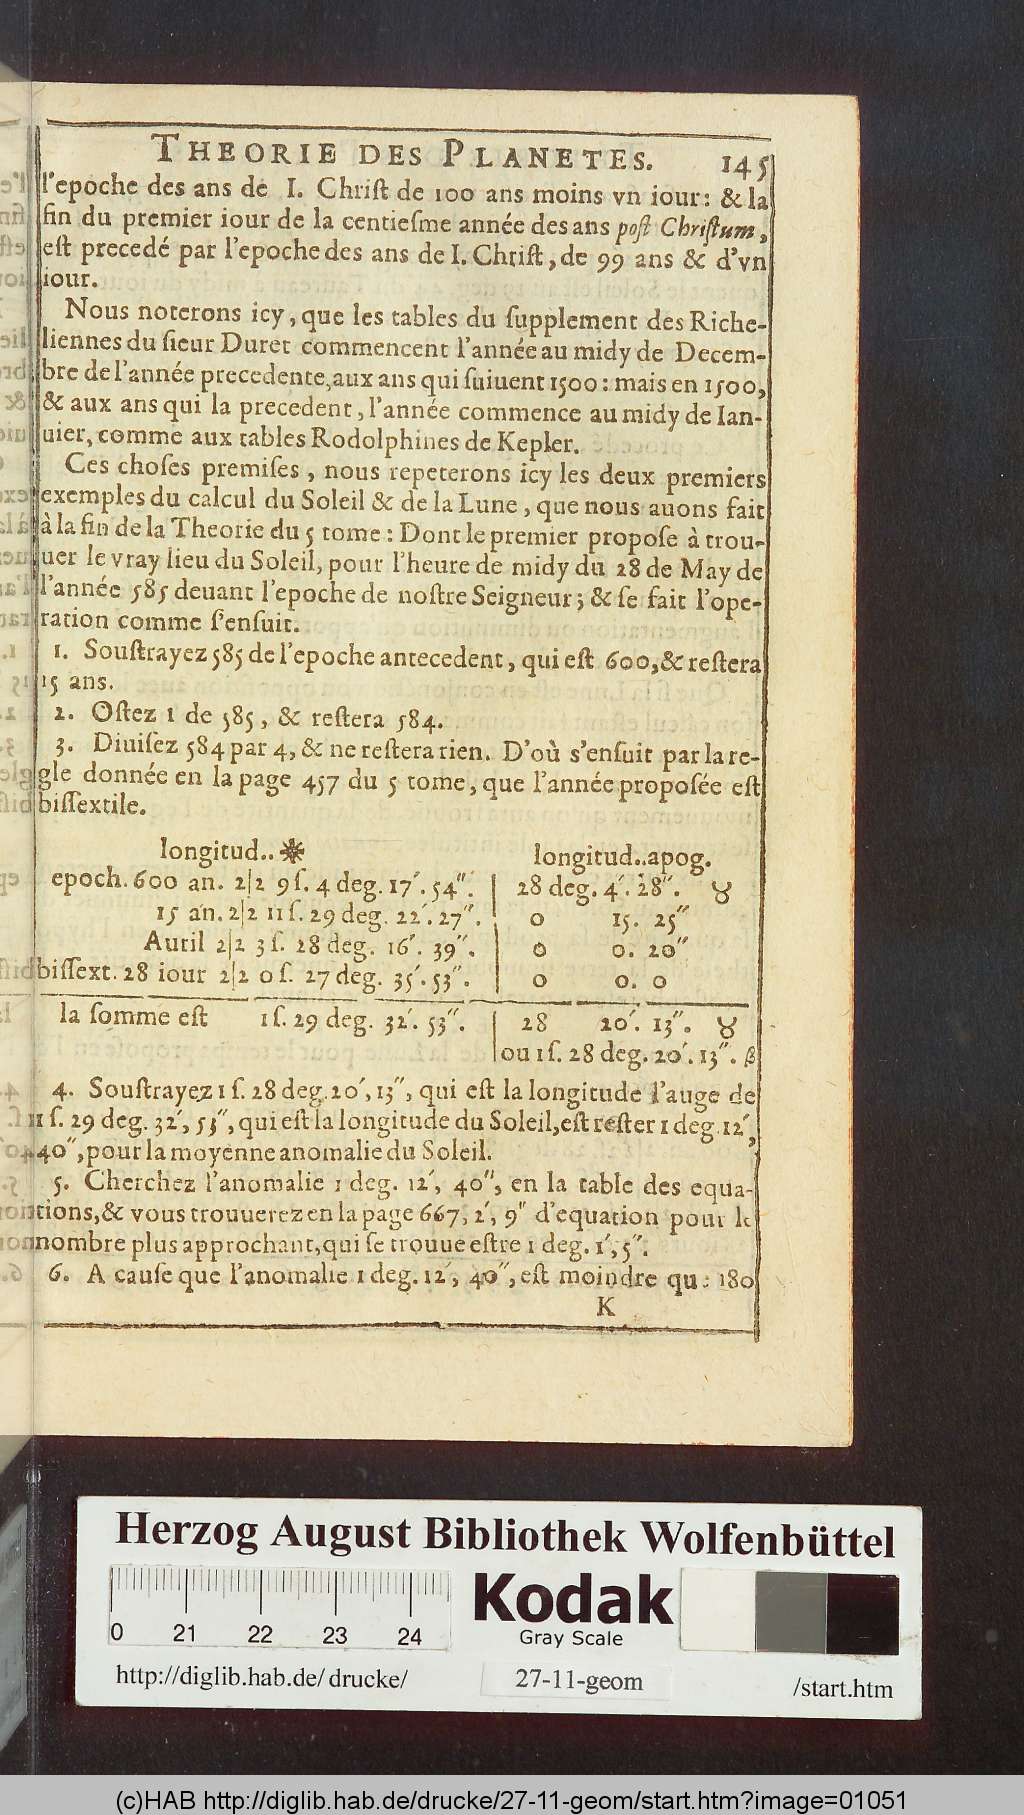 THEORIE DES PLANETES. 145
l'epoche des ans de I. Chriſt de 100 ans moins vn iour: & la
fin du premier iour de la centieſme année des ans poſt Chriſtum,
eſt precedé par l'epoche des ans de I. Chriſt, de 99 ans & d'vn
iour.
Nous noterons icy, que les tables du ſupplement des Riche-
liennes du ſieur Duret commencent l'année au midy de Decem-
bre de l'année precedente, aux ans qui ſuiuent 1500: mais en 1500,
& aux ans qui la precedent, l'année commence au midy de Ian-
uier, comme aux tables Rodolphines de Kepler.
Ces choſes premiſes, nous repeterons icy les deux premiers
exemples du calcul du Soleil & de la Lune, que nous auons fait
à la fin de la Theorie du 5 tome: Dont le premier propoſe à trou-
uer le vray lieu du Soleil, pour l'heure de midy du 28 de May de
l'année 585 deuant l'epoche de noſtre Seigneur; & ſe fait l'ope-
ration comme ſ'enſuit.
1. Souſtrayez 585 de l'epoche antecedent, qui eſt 600, & reſtera
15 ans.
2. Oſtez 1 de 585, & reſtera 584.
3. Diuiſez 584 par 4, & ne reſtera rien. D'où s'enſuit par la re-
gle donnée en la page 457 du 5 tome, que l'année propoſée eſt
biſſextile.
longitud..☀ longitud..apog.
epoch. 600 an. 2|2 9 ſ. 4 deg. 17′. 54″. | 28 deg. 4′. 28″. ♉
15 an. 2|2 11 ſ. 29 deg. 22′. 27″. | 0 15. 25″
Auril 2|2 3 ſ. 28 deg. 16′. 39″. | 0 0. 20″
biſſext. 28 iour 2|2 0 ſ. 27 deg. 35′. 53″. | 0 0. 0
la ſomme eſt 1 ſ. 29 deg. 32′. 53″. | 28 20′. 13″. ♉
ou 1 ſ. 28 deg. 20′. 13″. β
4. Souſtrayez 1 ſ. 28 deg. 20′, 13″, qui eſt la longitude l'auge de
11 ſ. 29 deg. 32′, 53″, qui eſt la longitude du Soleil, eſt reſter 1 deg. 12′,
40″, pour la moyenne anomalie du Soleil.
5. Cherchez l'anomalie 1 deg. 12′, 40″, en la table des equa-
tions, & vous trouuerez en la page 667, 2′, 9″ d'equation pour le
nombre plus approchant, qui ſe trouue eſtre 1 deg. 1′, 5″.
6. A cauſe que l'anomalie 1 deg. 12′, 40″, eſt moindre que 180
K
Herzog August Bibliothek Wolfenbüttel
0 21 22 23 24
Kodak
Gray Scale
http://diglib.hab.de/drucke/ 27-11-geom /start.htm
(c)HAB http://diglib.hab.de/drucke/27-11-geom/start.htm?image=01051